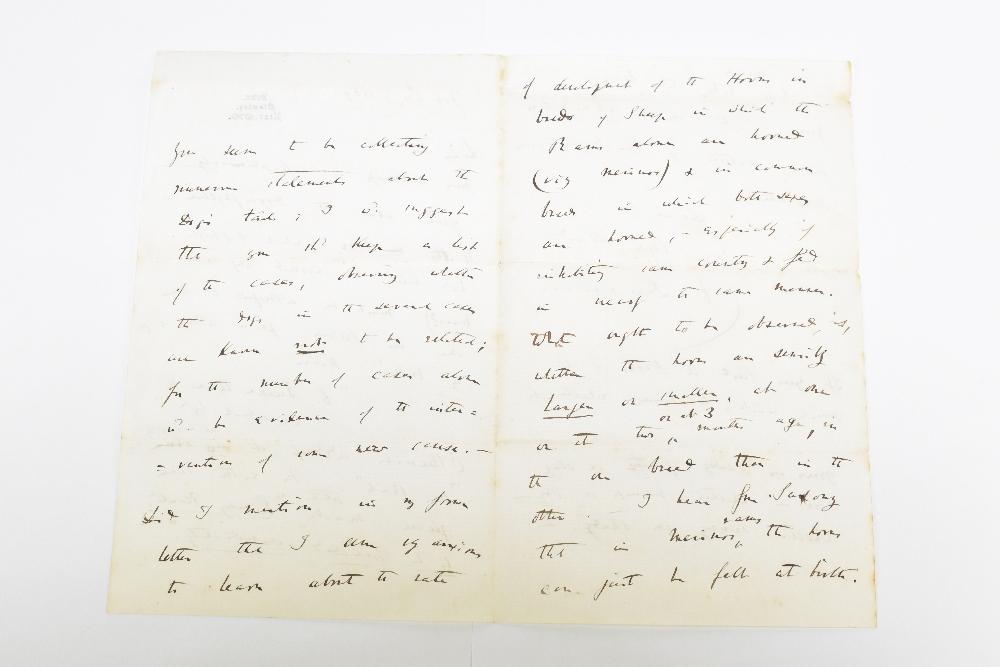 You seem to be collecting
numerous statements about the
dogs tails; I wd. suggest
tht you shd keep a list
of the cases, observing whether
the dogs in the several cases
are known not to be related;
for the number of cases alone
wd. be evidence of the inter=
=vention of some new cause. —
Did I mention in my former
letter that I am vy anxious
to learn about the rate
of development of the Horns in
breeds of Sheep in which the
Rams alone are horned
(viz merinos) & in common
breeds in which both sexes
are horned, — especially if
inhabiting same country & fed
in nearly the same manner.
What ought to be observed, is,
whether the horns are sensibly
larger or smaller, at one
or at two or at 3 months age, in
the one breed than in the
other. I hear from Saxony
that in merinos rams the horns
can just be felt at birth.